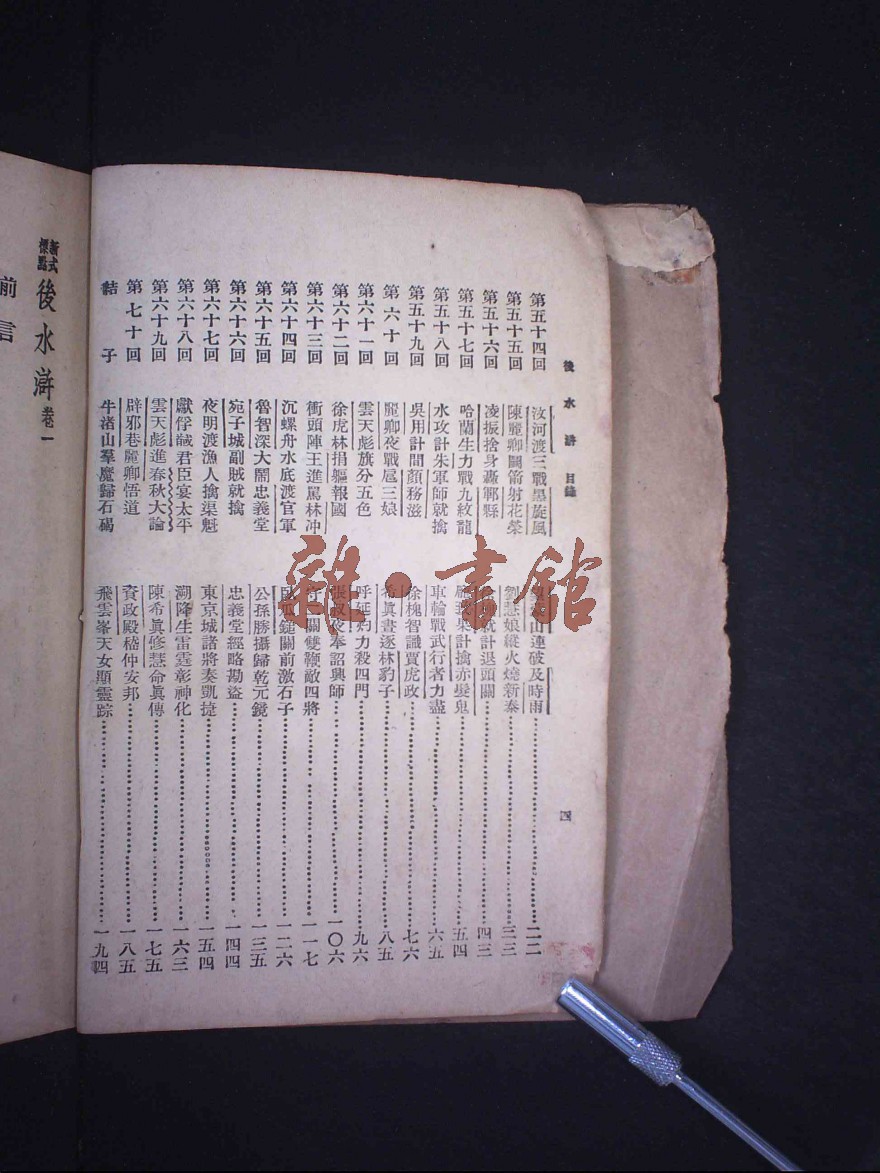 後水滸 目錄
四
第五十四回 汶河渡三戰黑旋風 山連破及時雨 二二
第五十五回 陳麗卿鬬箭射花榮 劉慧娘縱火燒新泰 三三
第五十六回 凌振捨身轟鄆縣 就計退頭關 四三
第五十七回 哈蘭生力戰九紋龍 計擒赤髮鬼 五四
第五十八回 水攻計朱軍師就擒 車輪戰武行者力盡 六五
第五十九回 吳用計間顏務滋 徐槐智識賈虎政 七六
第六十回 麗卿夜戰扈三娘 希眞晝逐林豹子 八五
第六十一回 雲天彪旗分五色 呼延灼力殺四門 九六
第六十二回 徐虎林捐軀報國 張叔夜奉詔興師 一〇六
第六十三回 衝頭陣王進罵林冲 守二關雙鞭敵四將 一一七
第六十四回 沉螺舟水底渡官軍 臥瓜鎚關前激石子 一二六
第六十五回 魯智深大鬧忠義堂 公孫勝攝歸乾元鏡 一三五
第六十六回 宛子城副賊就擒 忠義堂經略勘盜 一四四
第六十七回 夜明渡漁人擒渠魁 東京城諸將奏凱捷 一五四
第六十八回 獻俘馘君臣宴太平 溯降生雷霆彰神化 一六三
第六十九回 雲天彪進春秋大論 陳希眞修慧命眞傳 一七五
第七十回 辟邪巷麗卿悟道 資政殿嵇仲安邦 一八五
結子 牛渚山羣魔歸石碣 飛雲峯天女顯靈踪 一九四
新式標點 後水滸 卷一
前言
雜·書館